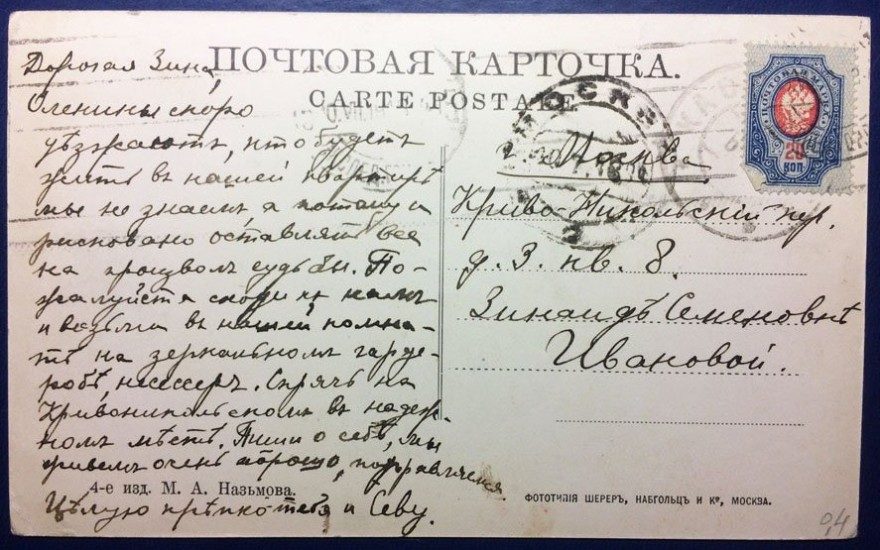 ПОЧТОВАЯ КАРТОЧКА.
CARTE POSTALE
Дорогая Зина,
Оленины скоро
уѣзжаютъ, кто будетъ
жить въ нашей квартирѣ
мы не знаемъ, а потому и
рисковано оставлять все
на произволъ судьбы. По-
жалуйста сходи къ намъ
и возьми въ нашей комна-
тѣ на зеркальномъ гарде-
робѣ, нессеръ. Спрячь на
Кривоникольскомъ въ надеж-
номъ мѣстѣ. Пиши о себѣ, мы
живемъ очень хорошо, поправляемся.
Цѣлую крѣпко тебя и Севу.
4-е изд. М. А. Назьмова.
МОСКВА
ПОЧТОВАЯ МАРКА
20
КОП
г. Москва
Криво-Никольскій пер.
д. 3. кв. 8.
Зинаидѣ Семеновнѣ
Ивановой.
ФОТОТИПІЯ ШЕРЕРЪ, НАБГОЛЬЦЪ И Кº, МОСКВА.
94